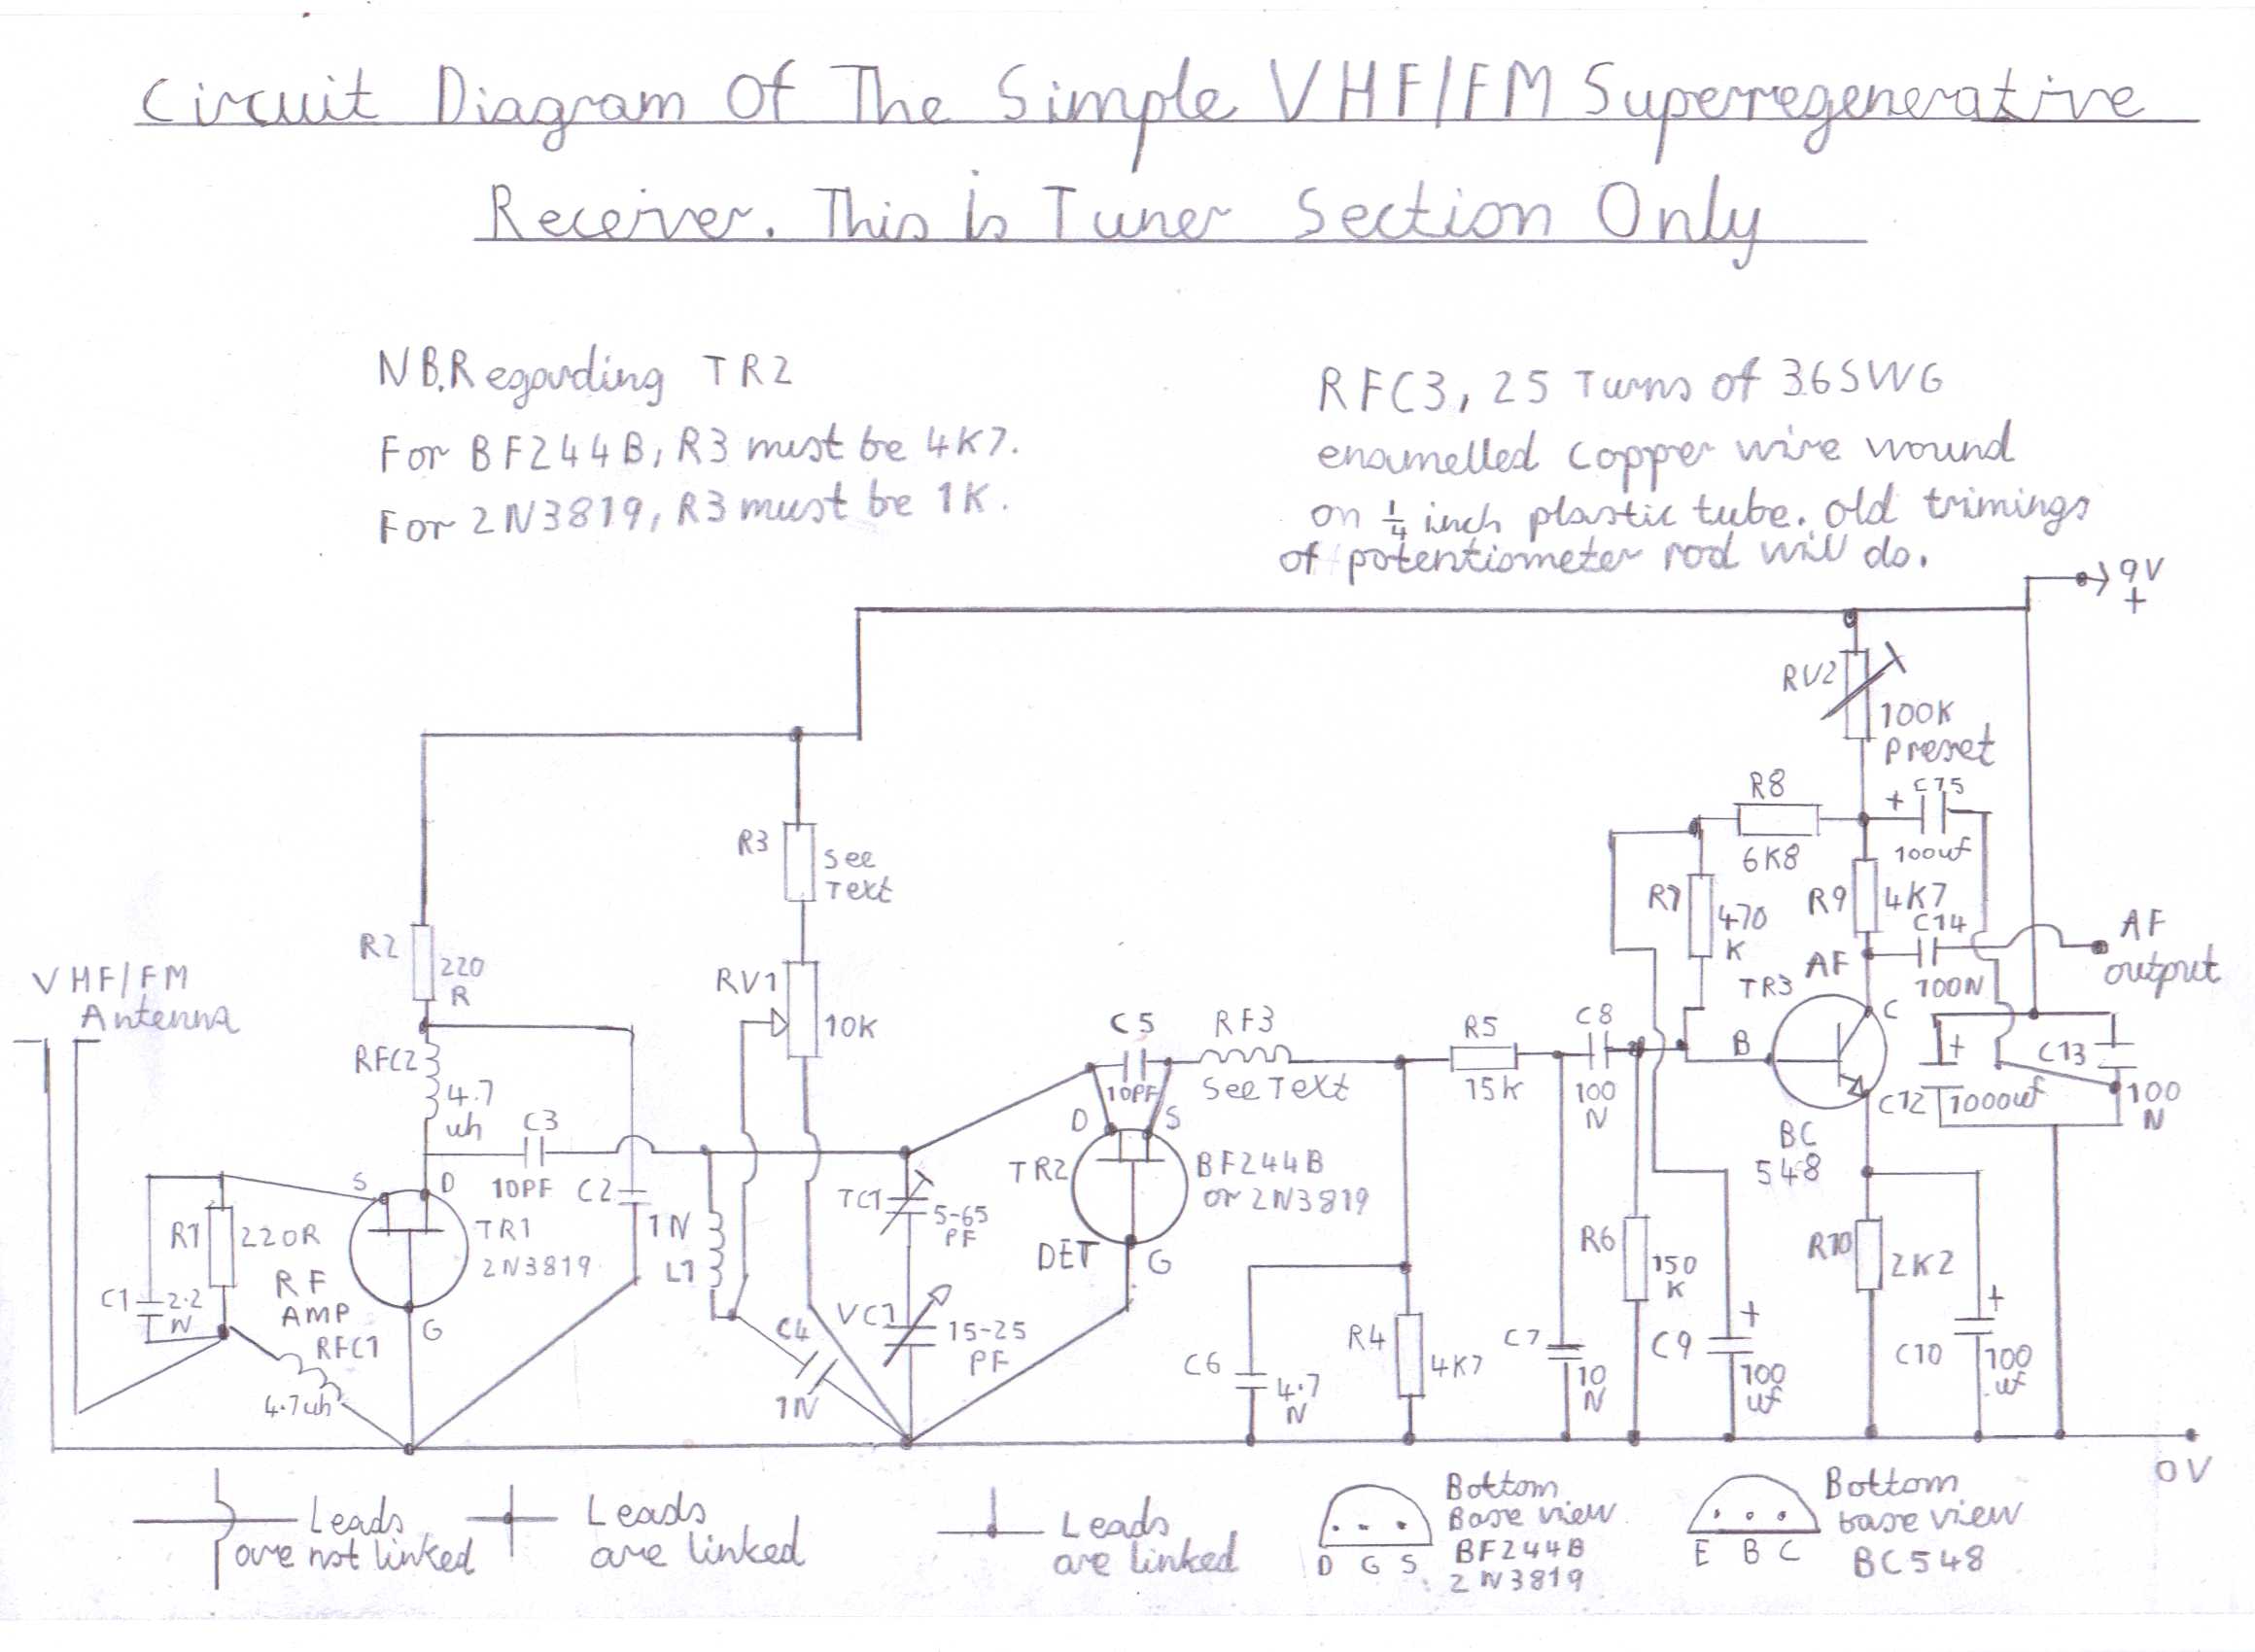 Circuit Diagram Of The Simple VHF/FM Superregenerative
Receiver. This Is Tuner Section Only
NB. Regarding TR2
For BF244B, R3 must be 4K7.
For 2N3819, R3 must be 1K.
RFC3, 25 Turns of 36SWG
enamelled copper wire wound
on 1/4 inch plastic tube. old trimings
of potentiometer rod will do.
9V
+
RV2
100K
Preset
R8
6K8
+
C15
100uf
R3
See
Text
R7
470
K
R9
4K7
C14
100N
AF
AF
output
R2
220
R
VHF/FM
Antenna
RV1
10K
RFC2
4.7
uh
C3
10PF
C2
1N
C5
10PF
RF3
See Text
R5
15K
C8
100
N
TR3
B
C
BC
548
C12
+
1000uf
C13
100
N
S
D
R1
220R
TR1
2N3819
RF
AMP
G
C1
2.2
N
RFC1
4.7uh
L1
TC1
5-65
PF
VC1
15-25
PF
C4
1N
D
S
TR2
BF244B
or 2N3819
DET
G
C6
4.7
N
R4
4K7
C7
10
N
R6
150
K
C9
+
100
uf
R10
2K2
C10
+
100
uf
0V
Leads
are not linked
Leads
are linked
Leads
are linked
D G S
Bottom
Base view
BF244B
2N3819
E B C
Bottom
base view
BC548